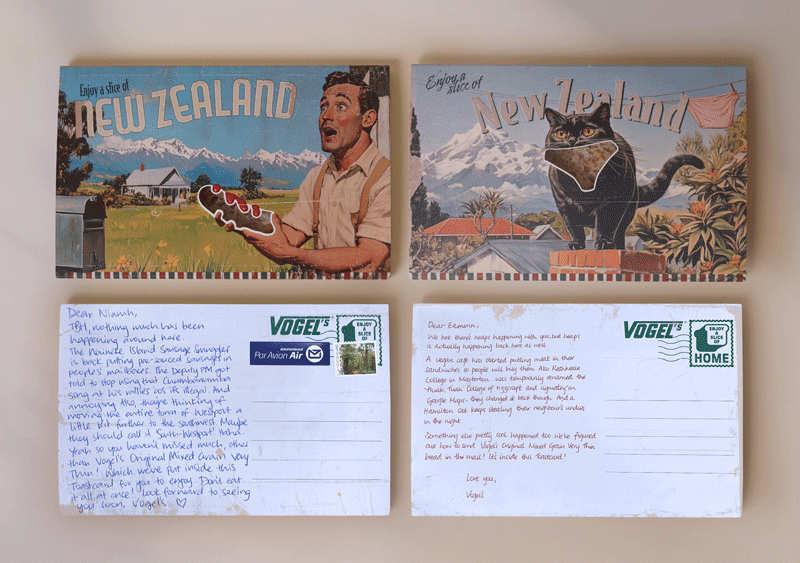 Enjoy a slice of
NEW ZEALAND
Enjoy a
slice of
New Zealand
Dear Niamh,
TBH, nothing much has been
happening around here.
The Waiheke Island Sausage Smuggler
is back putting pre-sauced sausages in
peoples' mailboxes. The Deputy PM got
told to stop using that Chumbawamba
song at his rallies cos its illegal. And
annoying tho, they're thinking of
moving the entire town of Westport a
little bit further to the southwest. Maybe
they should call it South-Westport! Haha.
Yeah so you haven't missed much, other
than Vogel's Original Mixed Grain Very
Thin! Which we've put inside this
Toastcard for you to enjoy. Don't eat
it all at once! Look forward to seeing
you soon, Vogel's ♡
VOGEL'S
ENJOY
A
SLICE
OF
Par Avion Air
Dear Eamonn,
We bet there's heaps happening with you, but heaps
is actually happening back here as well.
A vegan cafe has started putting meat in their
sandwiches so people will buy them. Also Rathkeale
College in Masterton was temporarily renamed the
Google Maps - they changed it back though. And a
Hamilton cat keeps stealing their neighbours' undies
in the night.
Something else pretty cool happened too. We've figured
out how to send Vogel's Original Mixed Grain Very Thin
bread in the mail! It's inside this Toastcard!
Love you,
Vogel's
VOGEL'S
ENJOY
A
SLICE
OF
HOME